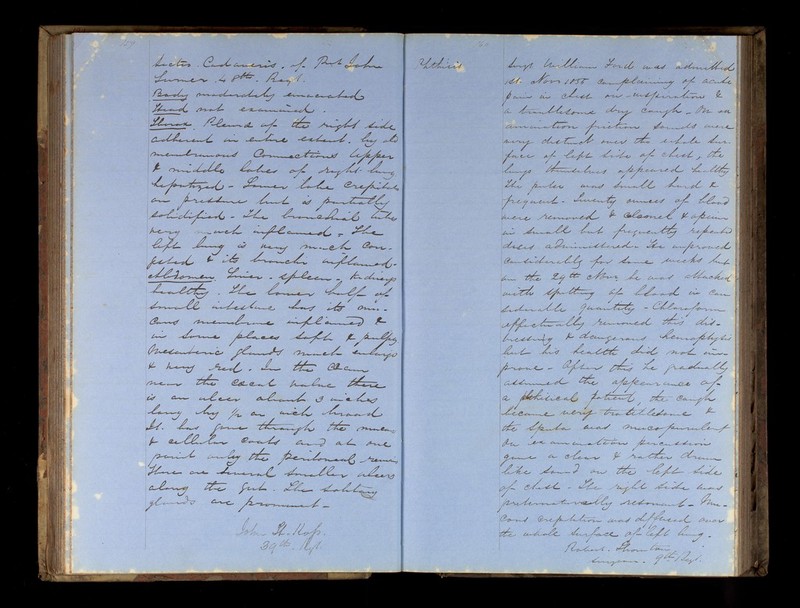 Sectio Cadaveris of Pvt John
Turner 48th Regt.
Body moderately emaciated
Head not examined.
Thorax. Pleura of the right side
adherent in entire extent by its
membranous connections Upper
& middle lobes of right lung
hepatized - Lower lobe crepitates
on pressure but is partially
solidified - The bronchial tubes
very much inflamed. The
left lung is very much con-
gested & its bronchi inflamed -
Abdomen Liver - spleen - kidneys
healthy The lower half of
small intestine has its mu-
cous membrane inflamed &
in some places soft & pulpy
Mesenteric glands much enlarged
& very red. In the
near the caecal valve there
is an ulcer about 3 inches
long by ½ an inch broad
It has gone through the mucous
& cellular coats and at one
point only the peritoneal remains
There are several smaller ulcers
along the gut. The solitary
glands are prominent -
John H.
39th Regt.
Phthisis
Sergt William Ford was admitted
1st Novr complaining of acute
pain in chest on inspiration &
a troublesome dry cough. On ex-
amination friction sounds were
very distinct over the whole sur-
face of left side of chest, the
lungs themselves appeared healthy
The pulse was small hard &
frequent - Twenty ounces of blood
were removed & Calomel & opium
in small but frequently repeated
doses administered - He improved
considerably for some weeks but
on the 29th Novr he was attacked
with spitting of blood in con-
siderable quantity - Chloroform
effectually removed this dis-
tressing & dangerous hemoptysis
but his health did not im-
prove - After this he gradually
assumed the appearance of
a phthisical patient, the cough
became very troublesome &
the sputa was mucopurulent
On examination percussion
gave a clear & rather drum
like sound on the left side
of chest - The right side was
preternaturally resonant - Mu-
cous crepitation was diffused over
the whole surface of left lung.
Robert Thornton
Surgeon. 9th Regt.